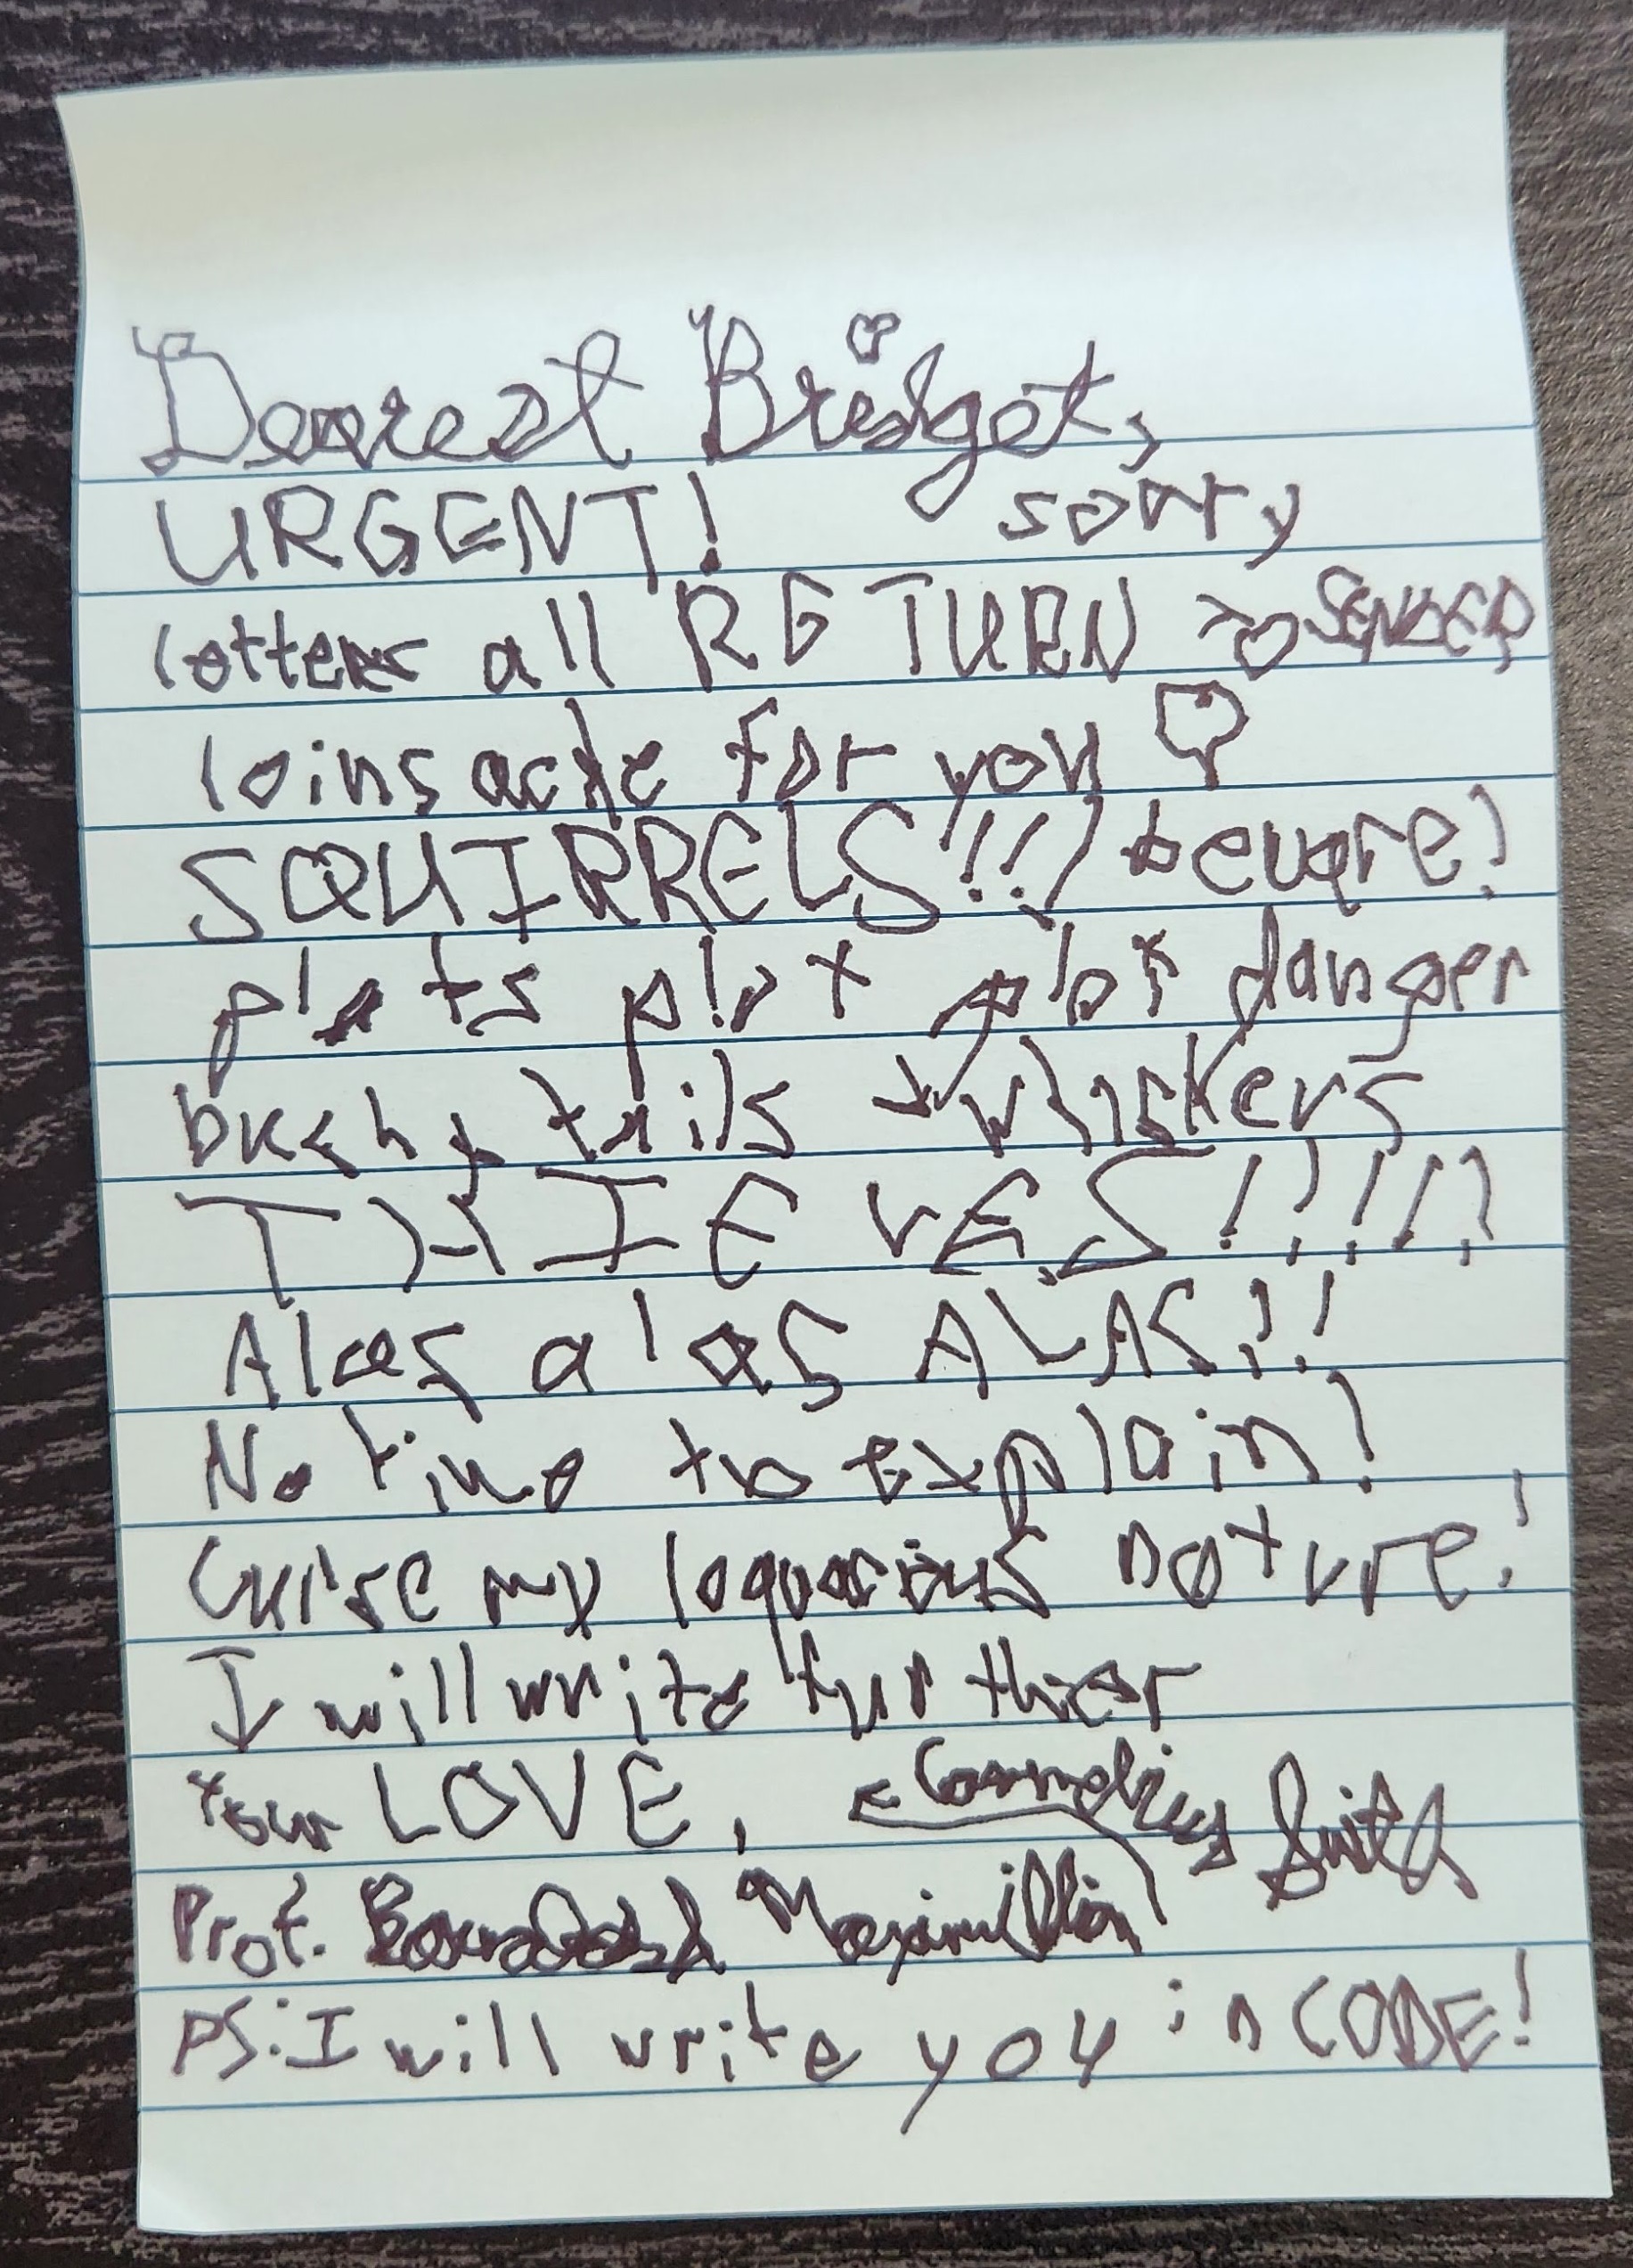 Dearest Bridget,
URGENT! sorry
letters all RETURN to SENDER
loins ache for you
SQUIRRELS!!!! beware!
plots plot plot danger
bushy tails + whiskers
THIEVES!!!!!!
Alas alas ALAS!!!
No time to explain!
Curse my loquacious nature!
I will write further
Your LOVE, Cornelius Smith
Prof. Maximillian
PS: I will write you in CODE!